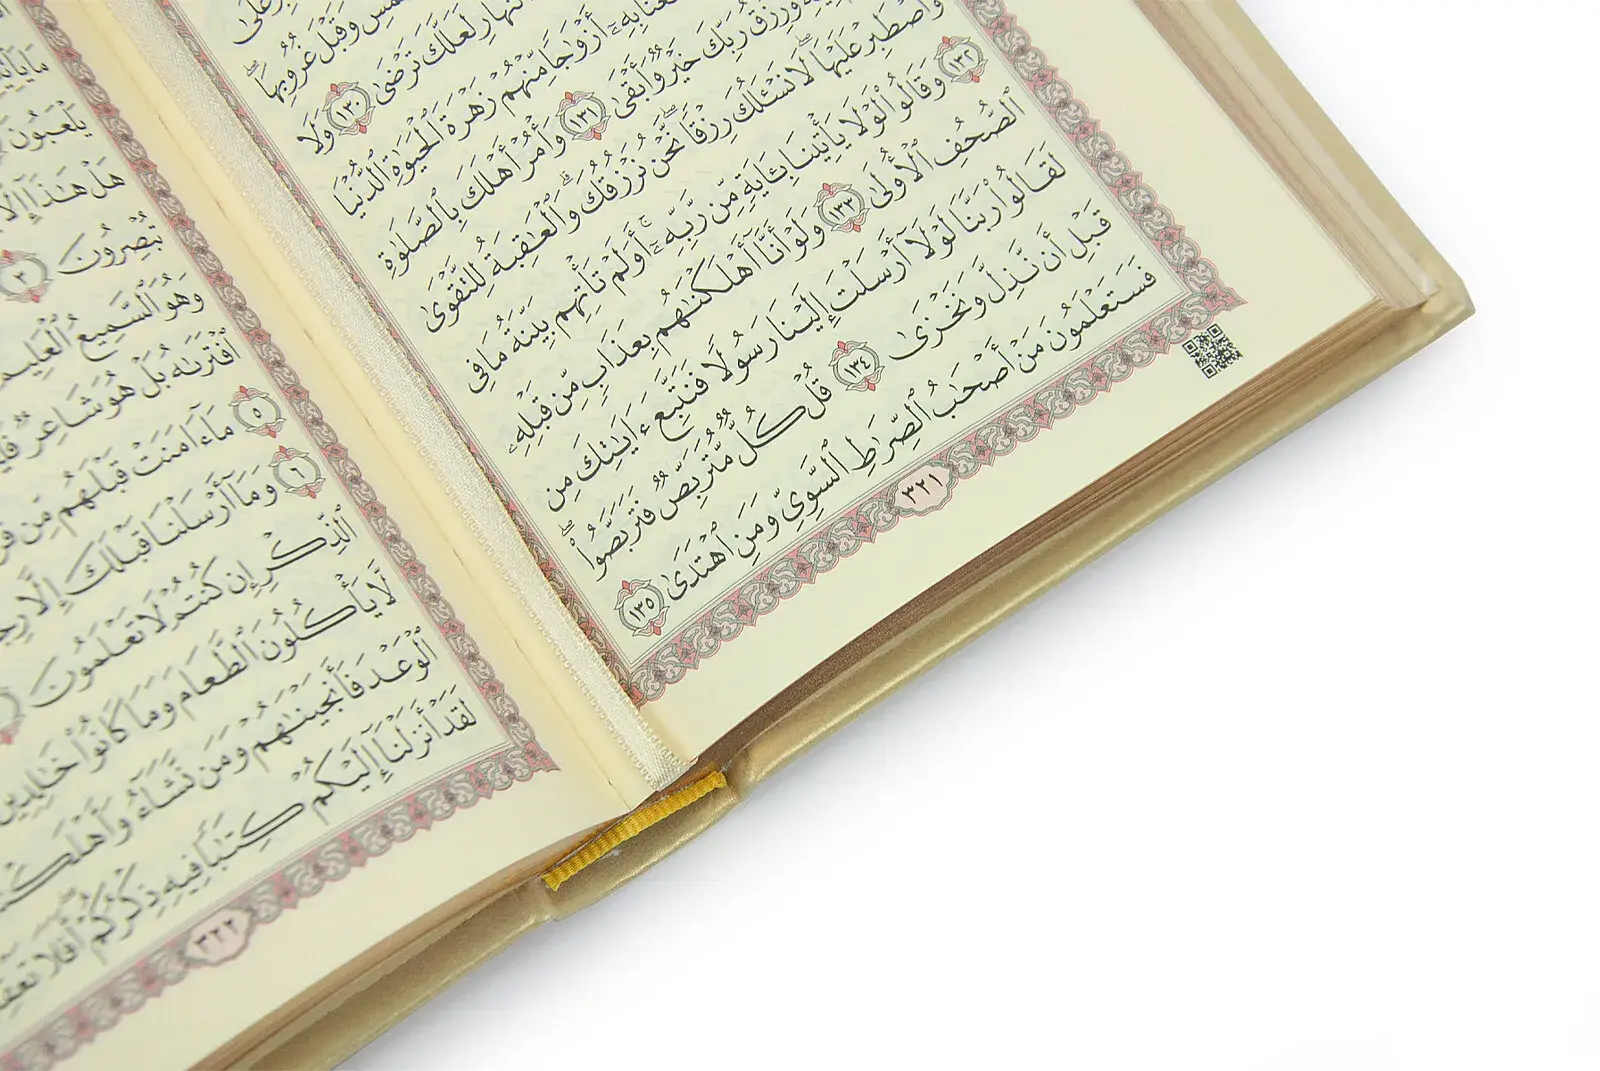 عَلَىٰ
وَقَبْلَ غُرُوبِهَا ۖ
لَعَلَّكَ تَرْضَىٰ ١٣٠ وَلَا
أَزْوَٰجًا مِّنْهُمْ زَهْرَةَ ٱلْحَيَوٰةِ ٱلدُّنْيَا
وَرِزْقُ رَبِّكَ خَيْرٌ وَأَبْقَىٰ ١٣١ وَأْمُرْ أَهْلَكَ بِٱلصَّلَوٰةِ
وَٱصْطَبِرْ عَلَيْهَا ۖ لَا نَسْـَٔلُكَ رِزْقًا ۖ نَّحْنُ نَرْزُقُكَ ۗ وَٱلْعَـٰقِبَةُ لِلتَّقْوَىٰ
١٣٢ وَقَالُوا۟ لَوْلَا يَأْتِينَا بِـَٔايَةٍ مِّن رَّبِّهِۦٓ ۚ أَوَلَمْ تَأْتِهِم بَيِّنَةُ مَا فِى
ٱلصُّحُفِ ٱلْأُولَىٰ ١٣٣ وَلَوْ أَنَّآ أَهْلَكْنَـٰهُم بِعَذَابٍ مِّن قَبْلِهِۦ
لَقَالُوا۟ رَبَّنَا لَوْلَآ أَرْسَلْتَ إِلَيْنَا رَسُولًا فَنَتَّبِعَ ءَايَـٰتِكَ مِن
قَبْلِ أَن نَّذِلَّ وَنَخْزَىٰ ١٣٤ قُلْ كُلٌّ مُّتَرَبِّصٌ فَتَرَبَّصُوا۟ ۖ
فَسَتَعْلَمُونَ مَنْ أَصْحَـٰبُ ٱلصِّرَٰطِ ٱلسَّوِىِّ وَمَنِ ٱهْتَدَىٰ ١٣٥
٣٢١
يَلْعَبُونَ
هَلْ هَـٰذَآ إِلَّا
تُبْصِرُونَ ٣
وَهُوَ ٱلسَّمِيعُ ٱلْعَلِيمُ
ٱفْتَرَىٰهُ بَلْ هُوَ شَاعِرٌ
٥ مَآ ءَامَنَتْ قَبْلَهُم مِّن
٦ وَمَآ أَرْسَلْنَا قَبْلَكَ إِلَّا
ٱلذِّكْرِ إِن كُنتُمْ لَا تَعْلَمُونَ
لَّا يَأْكُلُونَ ٱلطَّعَامَ وَمَا كَانُوا۟ خَـٰلِدِينَ
ٱلْوَعْدَ فَأَنجَيْنَـٰهُمْ وَمَن نَّشَآءُ
لَقَدْ أَنزَلْنَآ إِلَيْكُمْ كِتَـٰبًا فِيهِ ذِكْرُكُمْ ۖ أَفَلَا
٣٢٢